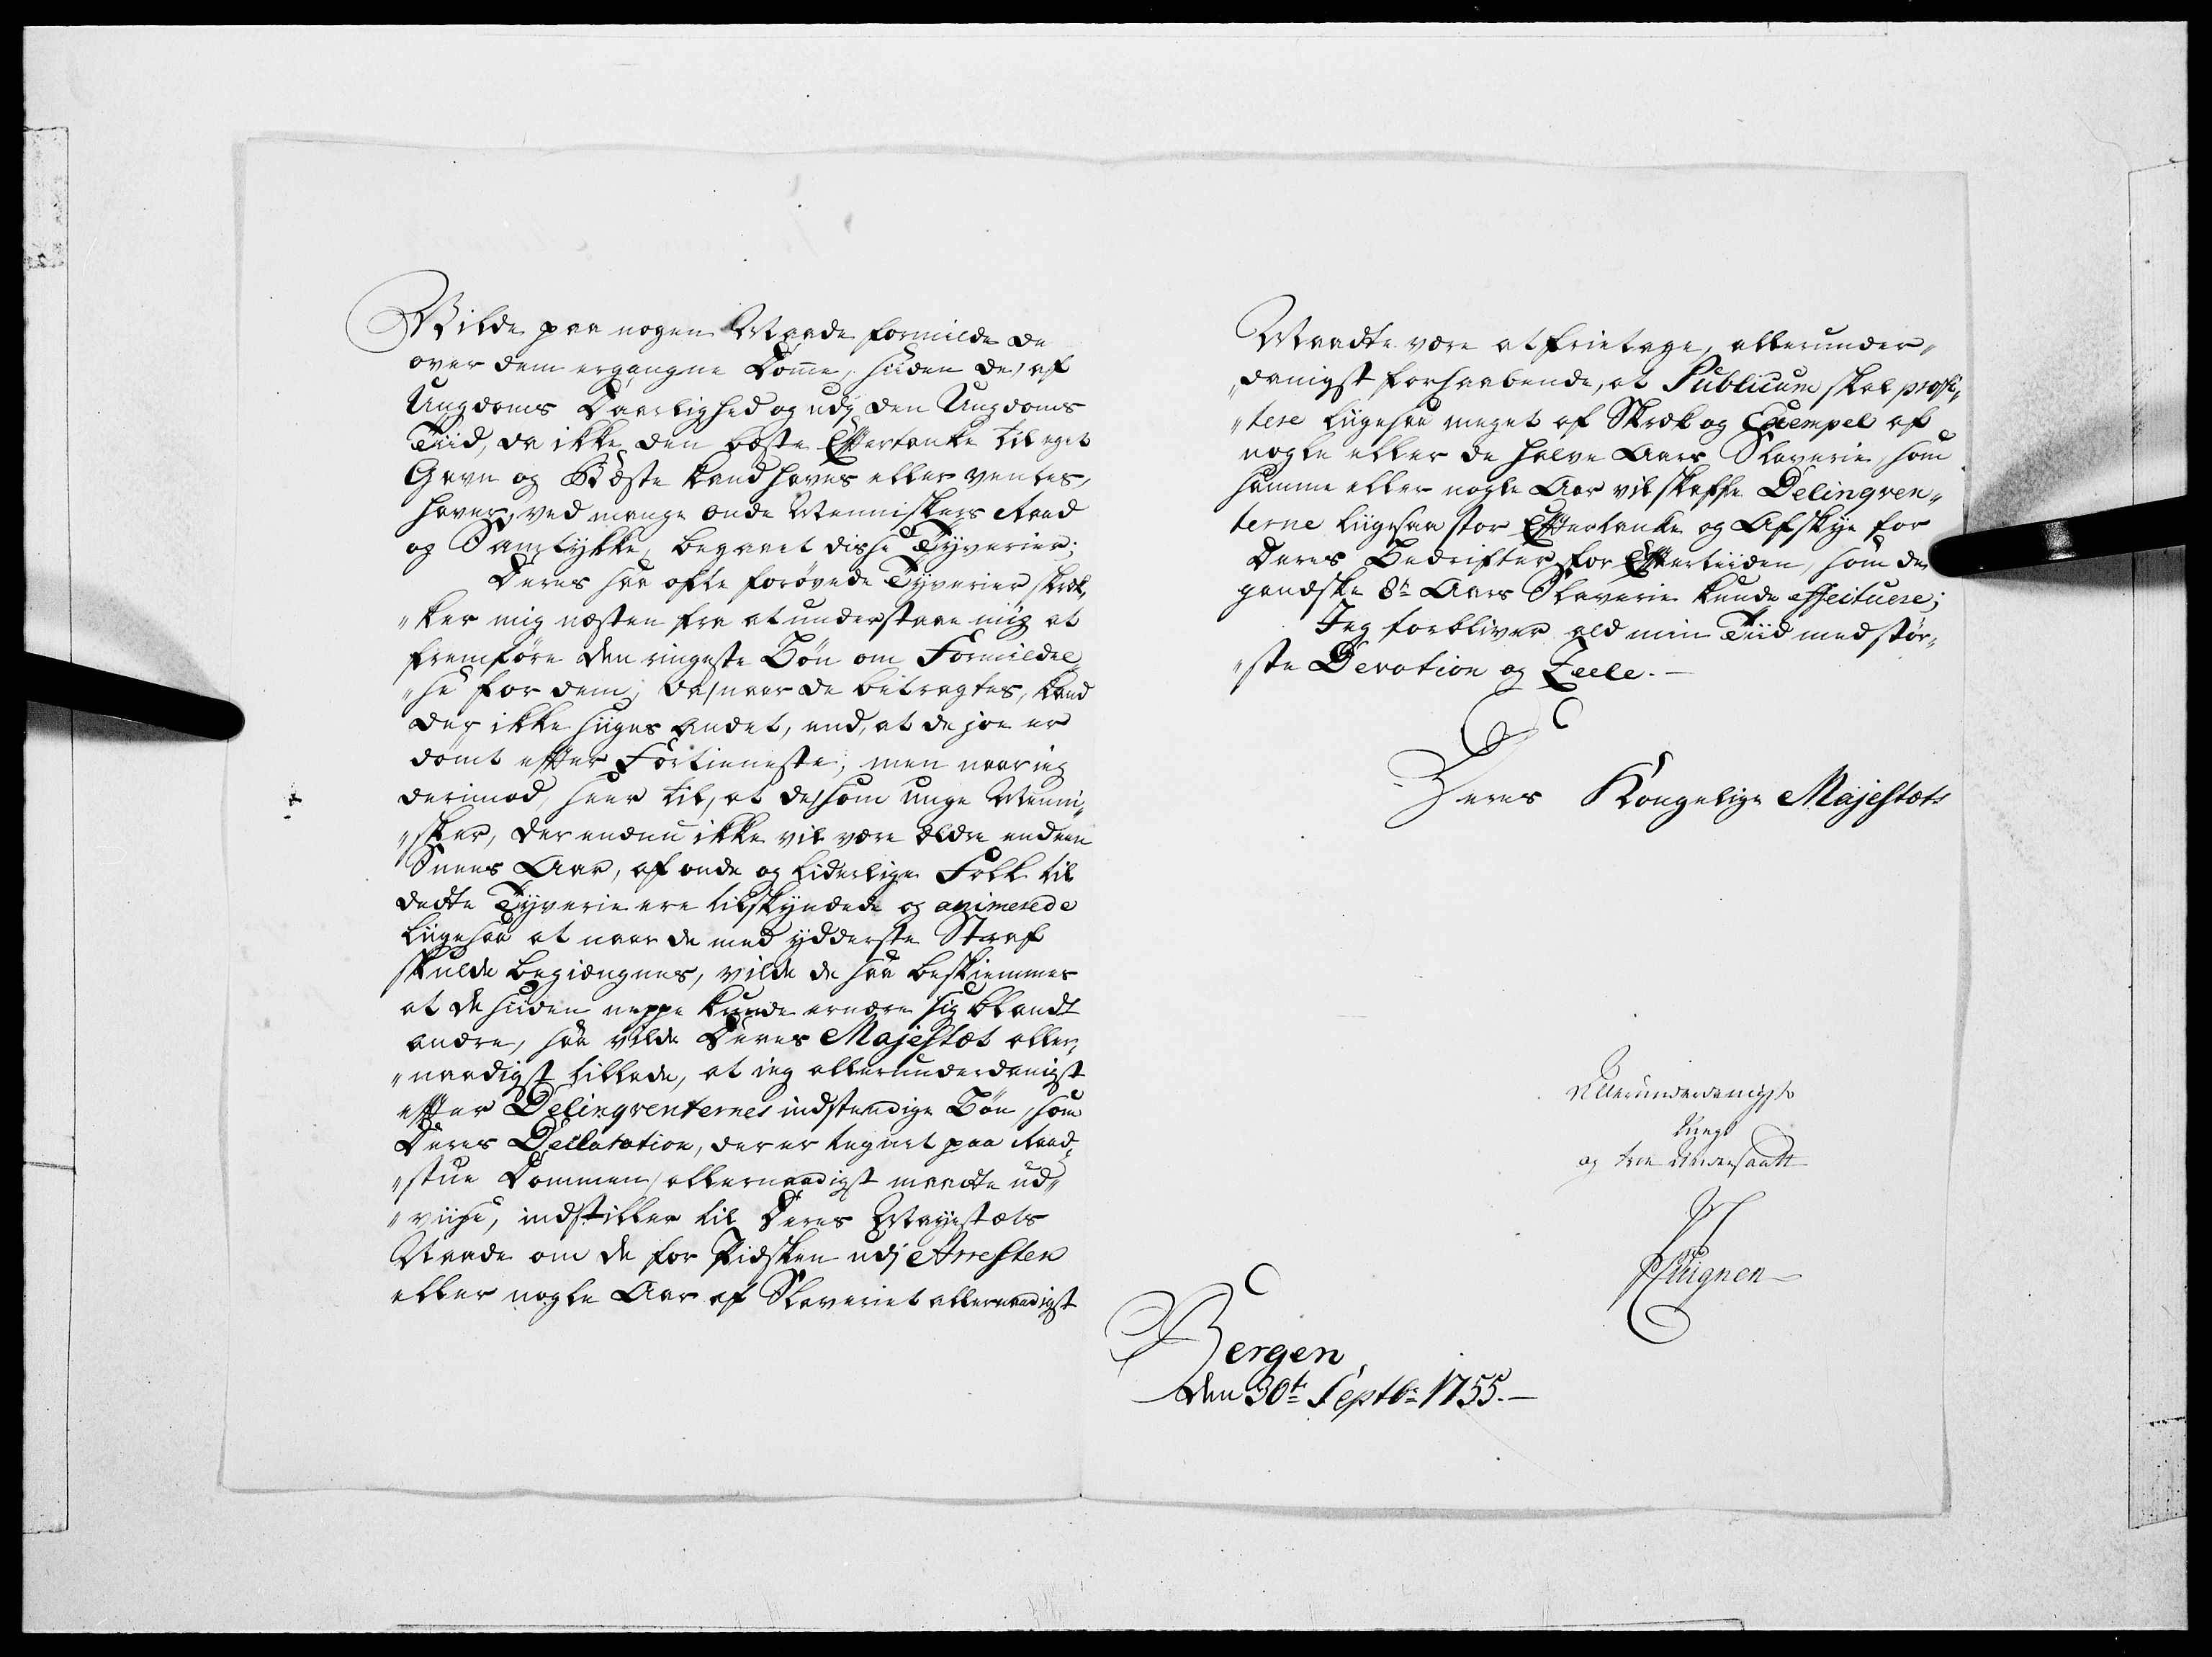 Vilde paa nogen Maade formilde de
over dem ergangne Domme, siiden de, af
Ungdoms Daarlighed og udj den Ungdoms
Tiid, da ikke den bæste Effertanke til eget
Gavn og Bæste kand haves eller ventes,
haver, ved mange onde Menniskers Raad
og Samtykke, begaaet disse Tyverier;
Deres saa ofte forøvede Tyverier skræk¬
„ker mig næsten fra at understaae mig at
fremføre den ringeste Bøn om Formildel¬
„se for dem; da, naar de betragtes, kand
der ikke siiges andet, end, at de joe er
dømt effter Fortieneste; men naar ieg
derimod, seer til, at de, som unge Menni¬
„sker, der endnu ikke vil være ældre end een
Snees Aar, af onde og liderlige Folk til
dedte Tyverie ere tilskyndede og animerede
liigesaa at naar de med ydderste Straf
skulde begiængnes, vilde de saa beskiemmes
at de siiden neppe kunde ernære sig blandt
andre, saa vilde Deres Majestæt aller¬
„naadigst tillade, at ieg allerunderdanigst
effter Delinqventernes indstændige Bøn, som
Deres Declaration, der er tegnet paa Raad¬
„stue Dommen allernaadigst maadte ud¬
„viise, indstiller til Deres Mayestæts
Naade om de for Pidsken udj Arresten
eller nogle Aar af Slaveriet allernaadigst
Maadte være at frietage, allerunder¬
„danigst forhaabende, at Publicum skal profi¬
„tere liigesaa meget af Skræk og Exempel af
nogle eller de halve Aars Slaverie, som
samme eller nogle Aar vil skaffe Delinqven¬
terne liigesaa stor Effertanke og Afskye for
Deres Bedrifter for Effertiiden, som de
gandske 8te Aars Slaverie kunde effectuere;
Jeg forbliver ald min Tiid med stør¬
„ste Devotion og Zeele.
Deres Kongelige Majestæts
Allerunderdanigste
og troe Undersaatt
Bergen,
den 30te Septbr 1755.